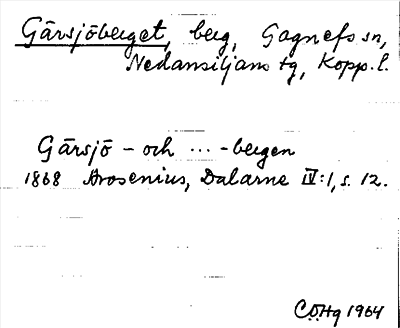 Gärsjöberget, berg, Gagnefs sn,
Nedansiljans tg, Kopp. l.
Gärsjö - och ... -bergen
1868 Arosenius, Dalarne IV:1, s. 12.
CÖHg 1964